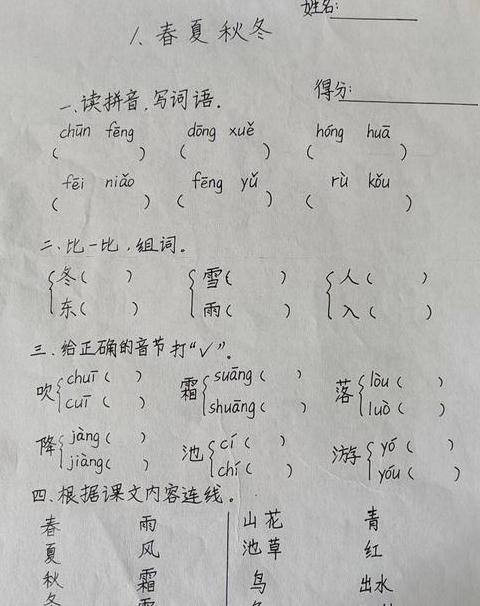 姓名:
1、春夏秋冬
得分:
一、读拼音,写词语.
chūn fēng dōng xuě hóng huā
( ) ( ) ( )
fēi niǎo fēng yǔ rù kǒu
( ) ( ) ( )
二、比一比,组词。
冬( ) 雪( ) 人( )
东( ) 雨( ) 入( )
三、给正确的音节打“√”。
吹 chuī( ) 霜 suāng( ) 落 lòu( )
cuī( ) shuāng( ) luò( )
降 jàng( ) 池 cí( ) 游 yó( )
jiàng( ) chí( ) yóu( )
四、根据课文内容连线。
春 雨 山花 青
夏 风 池草 红
秋 霜 鸟 出水
冬